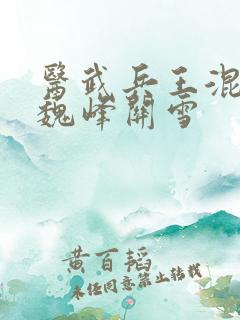 醫武兵王混
魏峰關雪
黄百韬
未经同意禁止转载